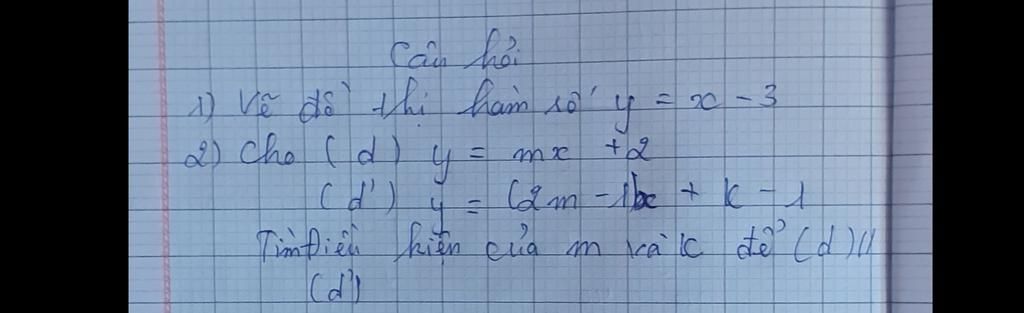 Câu hỏi
1) Vẽ đồ thị hàm số y = x - 3
2) Cho (d) y = mx + 2
(d') y = (2m - 1)x + k - 1
Tìm điều kiện của m và k để (d) //
(d')